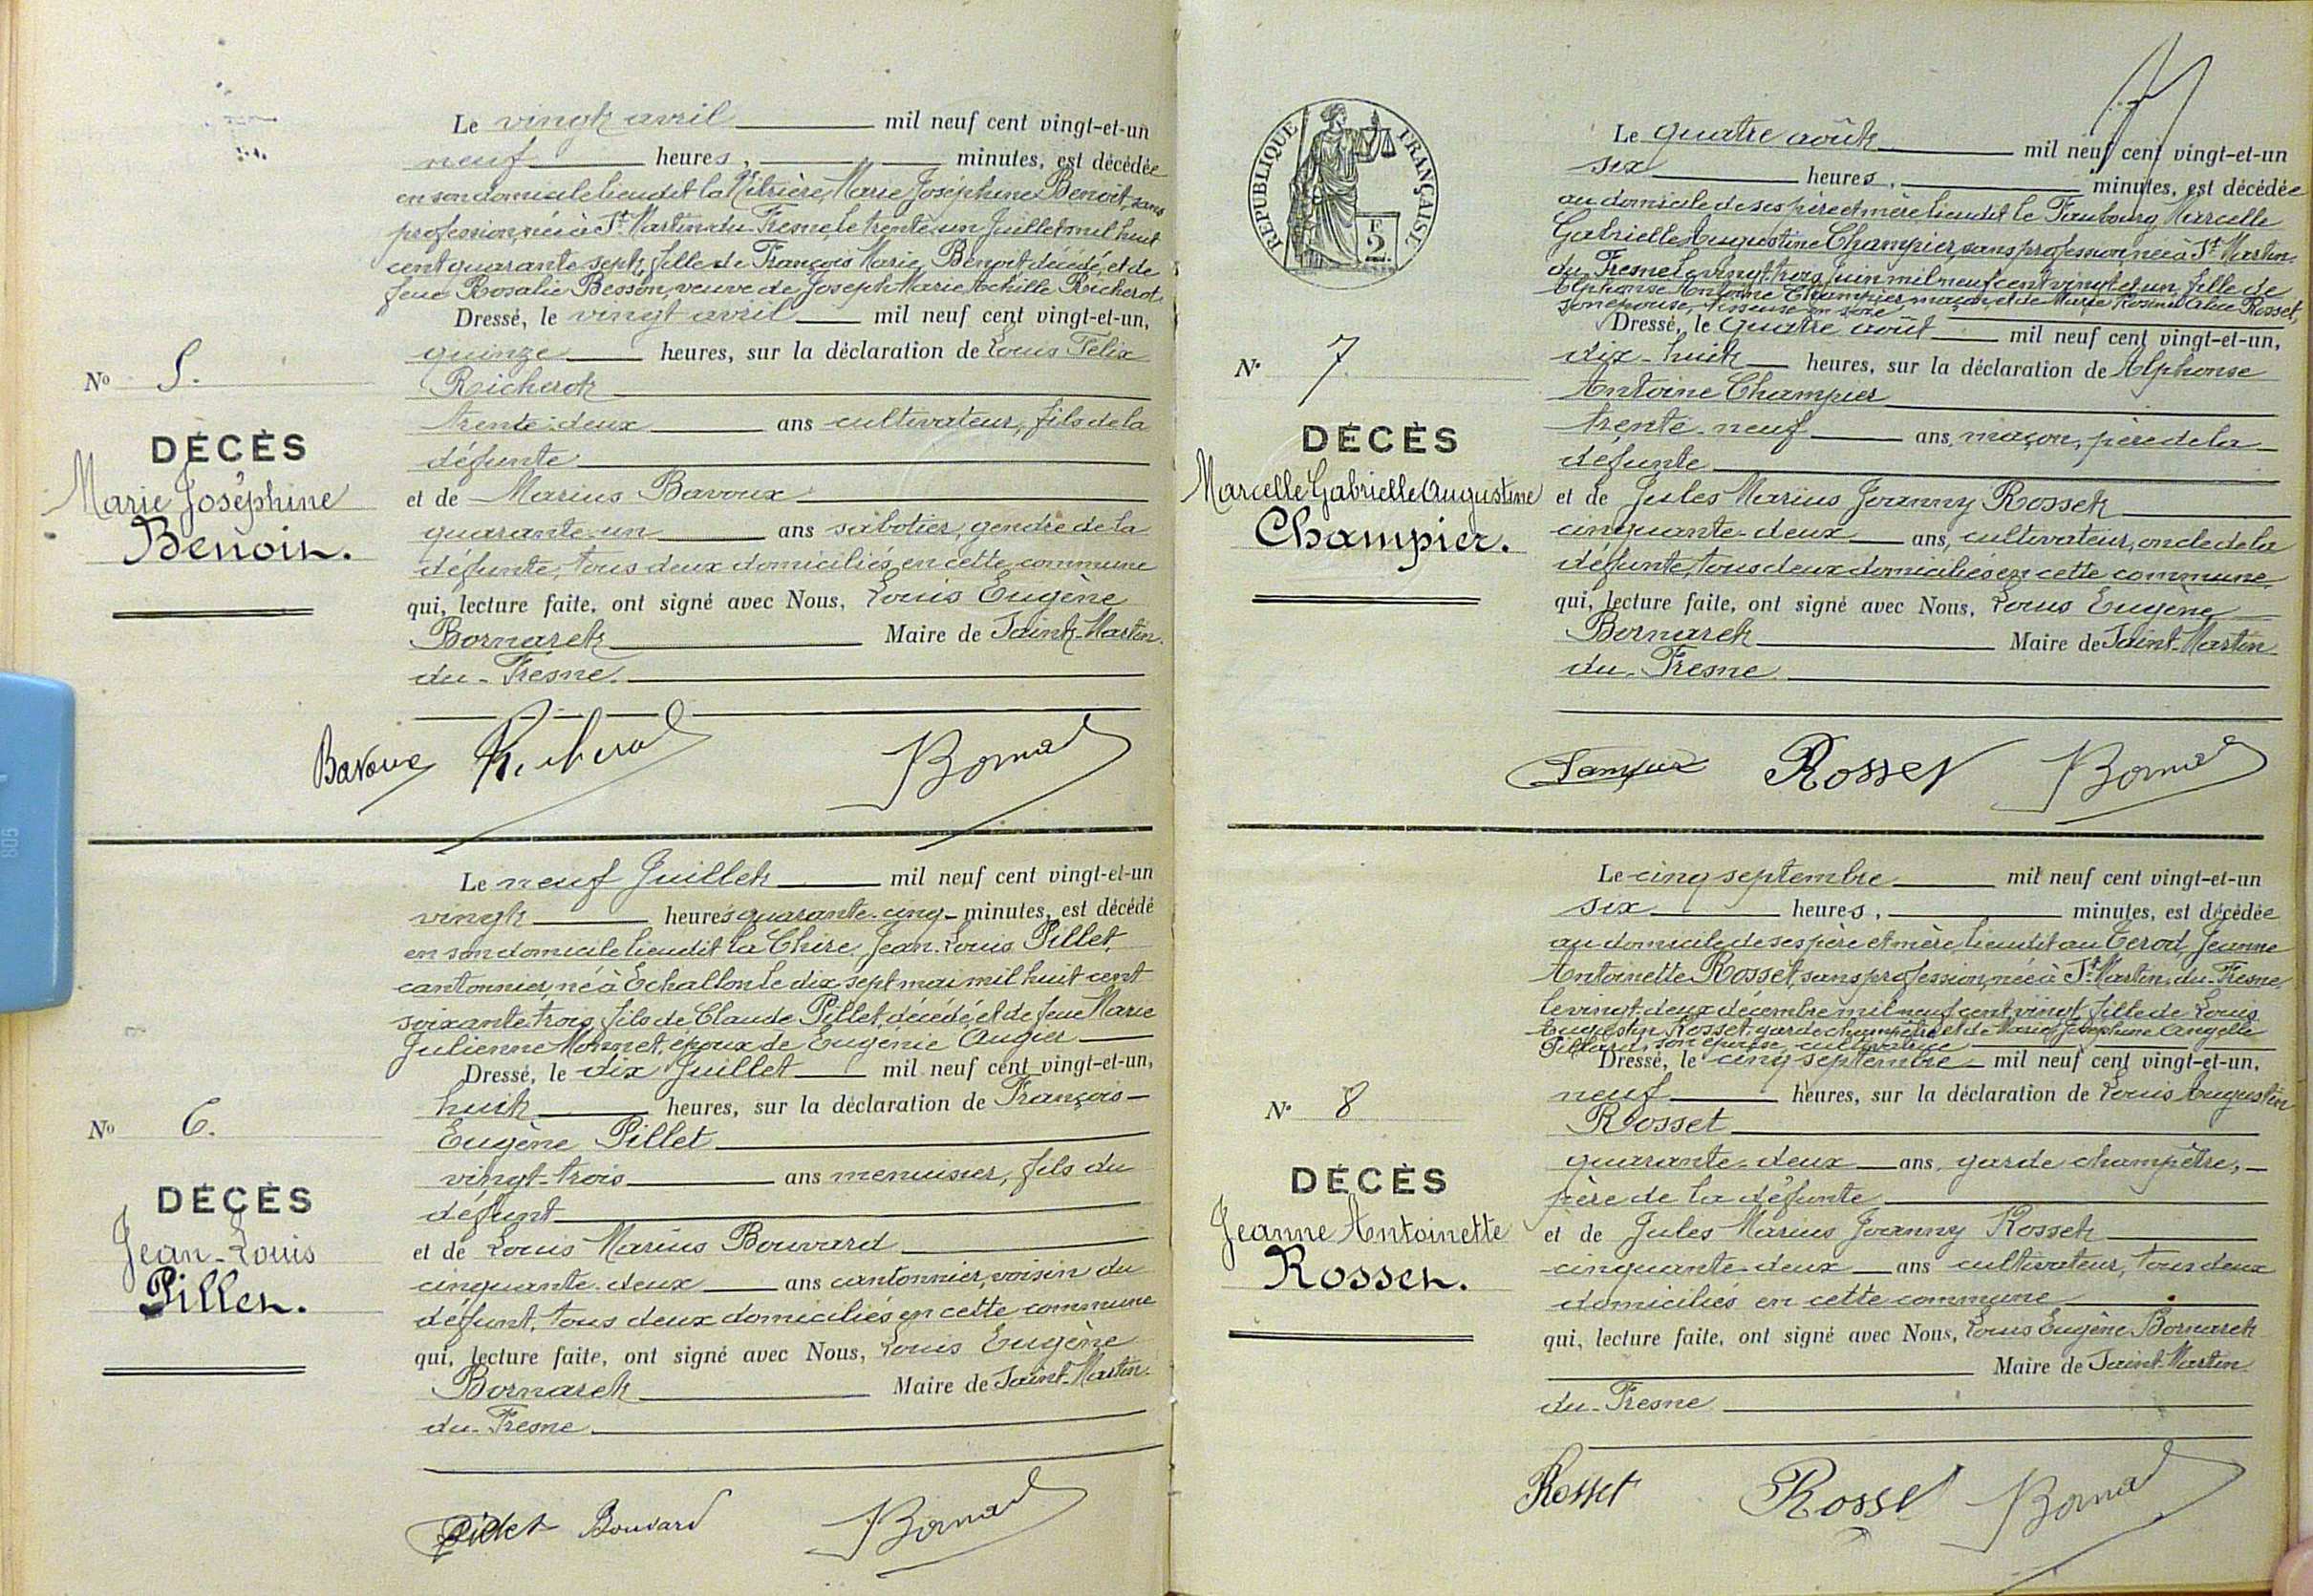 Le vingt avril mil neuf cent vingt-et-un
neuf heures, minutes, est décédée
en son domicile lieudit la Marie Joséphine Benoit, sans
profession, née à St Martin-du-Fresne, le trente un Juillet mil huit
cent quarante sept, fille de François Marie Benoit décédé, et de
feue Rosalie Besson, veuve de Joseph Marie Achille Richerot.
Dressé, le vingt avril mil neuf cent vingt-et-un,
quinze heures, sur la déclaration de Louis Félix
Richerot
trente-deux ans cultivateur, fils de la
défunte
et de Marius Bavoux
quarante-un ans sabotier, gendre de la
défunte, tous deux domiciliés en cette commune
qui, lecture faite, ont signé avec Nous, Louis Eugène
Bornarel Maire de Saint-Martin-
du-Fresne.
No 5.
DÉCÈS
Marie Joséphine
Benoit.
Bavoux Richerot Bornarel
Le neuf Juillet mil neuf cent vingt-et-un
vingt heures quarante-cinq minutes, est décédé
en son domicile lieudit la Chire, Jean-Louis Pillet,
cantonnier, né à Echallon le dix sept mai mil huit cent
soixante trois, fils de Claude Pillet, décédé, et de feue Marie
Julienne Monnet, époux de Eugénie Augier
Dressé, le dix Juillet mil neuf cent vingt-et-un,
huit heures, sur la déclaration de François-
Eugène Pillet
vingt-trois ans menuisier, fils du
défunt
et de Louis Marius Bouvard
cinquante-deux ans cantonnier, voisin du
défunt, tous deux domiciliés en cette commune
qui, lecture faite, ont signé avec Nous, Louis Eugène
Bornarel Maire de Saint-Martin-
du-Fresne
No 6.
DÉCÈS
Jean-Louis
Pillet.
Pillet Bouvard Bornarel
RÉPUBLIQUE FRANÇAISE
F
2
Le quatre août mil neuf cent vingt-et-un
six heures, minutes, est décédée
au domicile de ses père et mère lieudit le Faubourg, Marcelle
Gabrielle Augustine Champier, sans profession, née à St Martin-
du-Fresne le vingt trois Juin mil neuf cent vingt et un, fille de
Alphonse Antoine Champier maçon, et de Marie Rosine Alice Rosset,
son épouse, tisseuse en soie
Dressé, le quatre août mil neuf cent vingt-et-un,
dix-huit heures, sur la déclaration de Alphonse
Antoine Champier
trente-neuf ans, maçon, père de la
défunte
et de Jules Marius Joanny Rosset
cinquante-deux ans, cultivateur, oncle de la
défunte, tous deux domiciliés en cette commune
qui, lecture faite, ont signé avec Nous, Louis Eugène
Bornarel Maire de Saint-Martin
du-Fresne
No 7.
DÉCÈS
Marcelle Gabrielle Augustine
Champier.
Rosset Bornarel
Le cinq septembre mil neuf cent vingt-et-un
six heures, minutes, est décédée
au domicile de ses père et mère, lieudit au Terod, Jeanne
Antoinette Rosset, sans profession, née à St Martin-du-Fresne,
le vingt-deux décembre mil neuf cent vingt, fille de Louis
Augustin Rosset, garde champêtre et de Marie Joséphine Angelle
son épouse, cultivatrice
Dressé, le cinq septembre mil neuf cent vingt-et-un,
neuf heures, sur la déclaration de Louis Augustin
Rosset
quarante-deux ans, garde champêtre,
père de la défunte
et de Jules Marius Joanny Rosset
cinquante-deux ans cultivateur, tous deux
domiciliés en cette commune
qui, lecture faite, ont signé avec Nous, Louis Eugène Bornarel
Maire de Saint-Martin
du-Fresne
No 8
DÉCÈS
Jeanne Antoinette
Rosset.
Rosset Rosset Bornarel